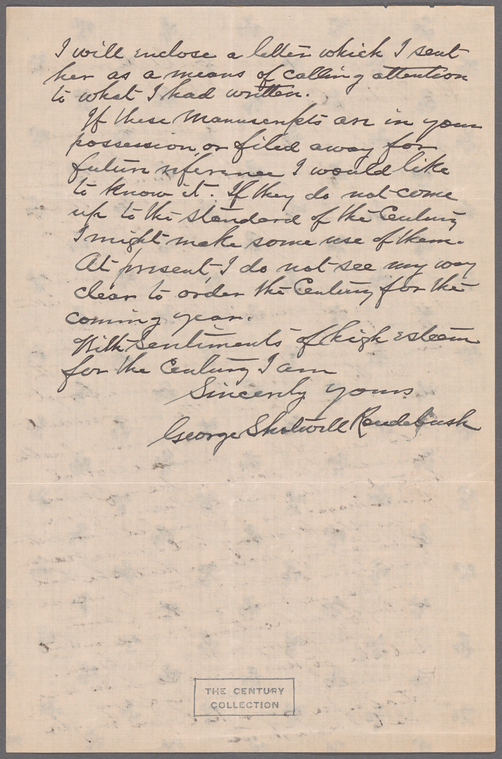 I will enclose a letter which I sent
her as a means of calling attention
to what I had written.
If these Manuscripts are in your
possession or filed away for
future reference I would like
to know it. If they do not come
up to the standard of the Century
I might make some use of them.
At present, I do not see my way
clear to order the Century for the
coming year.
With sentiments of high esteem
for the Century I am
Sincerely yours
George Shotwell Roudebush
THE CENTURY
COLLECTION